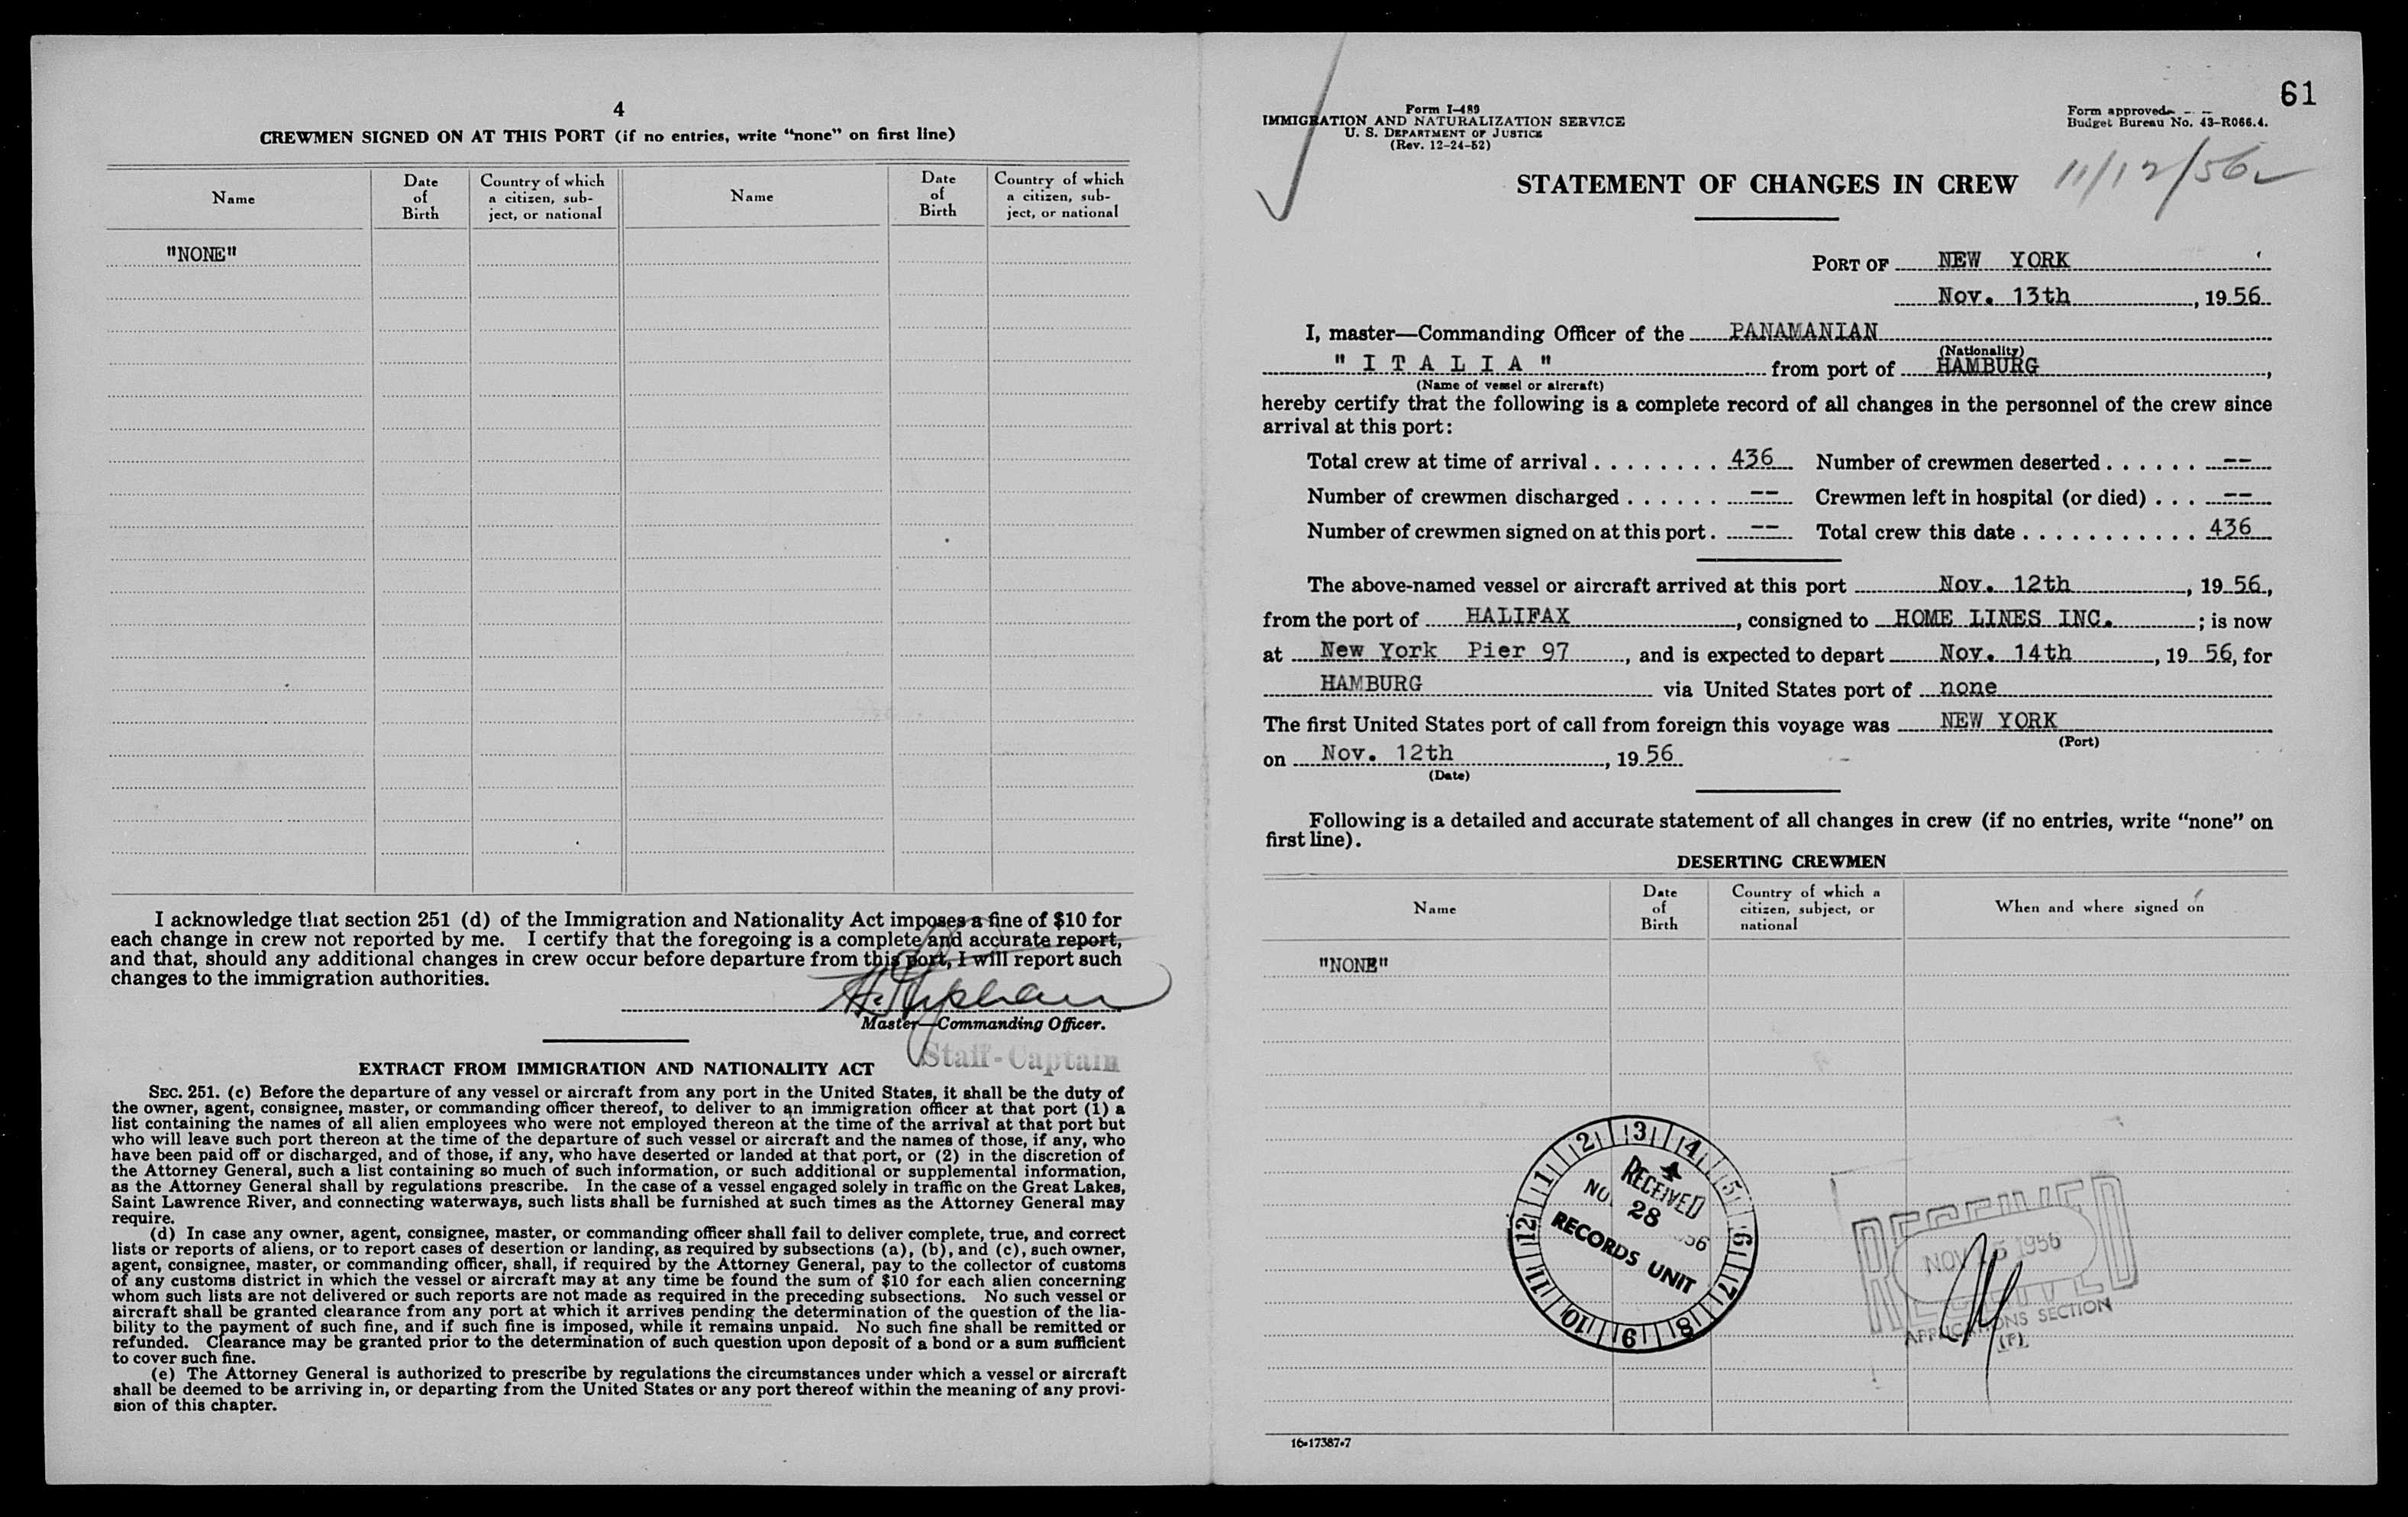 4
CREWMEN SIGNED ON AT THIS PORT (if no entries, write “none” on first line)
Name
Date of Birth
Country of which a citizen, subject, or national
Name
Date of Birth
Country of which a citizen, subject, or national
"NONE"
I acknowledge that section 251 (d) of the Immigration and Nationality Act imposes a fine of $10 for
each change in crew not reported by me. I certify that the foregoing is a complete and accurate report,
and that, should any additional changes in crew occur before departure from this port, I will report such
changes to the immigration authorities.
Master—Commanding Officer.
Staff-Captain
EXTRACT FROM IMMIGRATION AND NATIONALITY ACT
SEC. 251. (c) Before the departure of any vessel or aircraft from any port in the United States, it shall be the duty of
the owner, agent, consignee, master, or commanding officer thereof, to deliver to an immigration officer at that port (1) a
list containing the names of all alien employees who were not employed thereon at the time of the arrival at that port but
who will leave such port thereon at the time of the departure of such vessel or aircraft and the names of those, if any, who
have been paid off or discharged, and of those, if any, who have deserted or landed at that port, or (2) in the discretion of
the Attorney General, such a list containing so much of such information, or such additional or supplemental information,
as the Attorney General shall by regulations prescribe. In the case of a vessel engaged solely in traffic on the Great Lakes,
Saint Lawrence River, and connecting waterways, such lists shall be furnished at such times as the Attorney General may
require.
(d) In case any owner, agent, consignee, master, or commanding officer shall fail to deliver complete, true, and correct
lists or reports of aliens, or to report cases of desertion or landing, as required by subsections (a), (b), and (c), such owner,
agent, consignee, master, or commanding officer, shall, if required by the Attorney General, pay to the collector of customs
of any customs district in which the vessel or aircraft may at any time be found the sum of $10 for each alien concerning
whom such lists are not delivered or such reports are not made as required in the preceding subsections. No such vessel or
aircraft shall be granted clearance from any port at which it arrives pending the determination of the question of the lia-
bility to the payment of such fine, and if such fine is imposed, while it remains unpaid. No such fine shall be remitted or
refunded. Clearance may be granted prior to the determination of such question upon deposit of a bond or a sum sufficient
to cover such fine.
(e) The Attorney General is authorized to prescribe by regulations the circumstances under which a vessel or aircraft
shall be deemed to be arriving in, or departing from the United States or any port thereof within the meaning of any provi-
sion of this chapter.
61
Form I-489
IMMIGRATION AND NATURALIZATION SERVICE
U. S. DEPARTMENT OF JUSTICE
(Rev. 12-24-52)
Form approved
Budget Bureau No. 43-R066.4.
11/12/56
STATEMENT OF CHANGES IN CREW
PORT OF NEW YORK
Nov. 13th, 1956
I, master—Commanding Officer of the PANAMANIAN
(Nationality)
"ITALIA" from port of HAMBURG,
(Name of vessel or aircraft)
hereby certify that the following is a complete record of all changes in the personnel of the crew since
arrival at this port:
Total crew at time of arrival . . . . . . . . 436 Number of crewmen deserted . . . . . . --
Number of crewmen discharged . . . . . . -- Crewmen left in hospital (or died) . . . --
Number of crewmen signed on at this port . -- Total crew this date . . . . . . . . . . . 436
The above-named vessel or aircraft arrived at this port Nov. 12th, 1956,
from the port of HALIFAX, consigned to HOME LINES INC.; is now
at New York Pier 97, and is expected to depart Nov. 14th, 19 56, for
HAMBURG via United States port of none
The first United States port of call from foreign this voyage was NEW YORK
(Port)
on Nov. 12th, 1956
(Date)
Following is a detailed and accurate statement of all changes in crew (if no entries, write “none” on
first line).
DESERTING CREWMEN
Name
Date of Birth
Country of which a citizen, subject, or national
When and where signed on
"NONE"
1 2 3 4 5 6 7 8 9 10 11 12
RECEIVED
NO 28 56
RECORDS UNIT
RECEIVED
NOV 15 1956
APPLICATIONS SECTION
(F)
16-17387-7